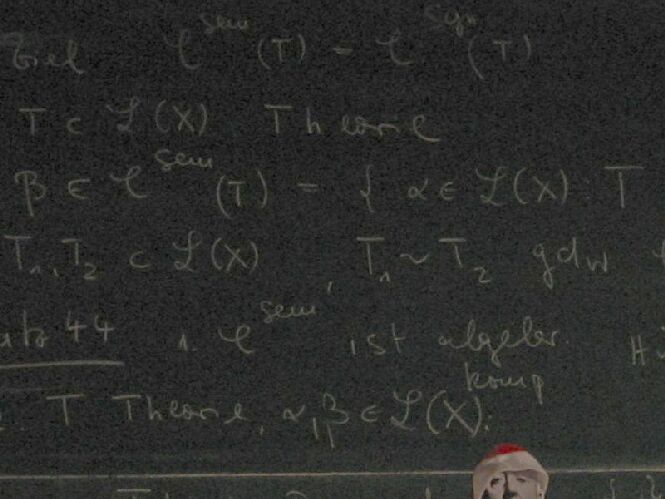 Ziel 𝒞^sem (T) = 𝒞^syn (T)
T ⊂ ℒ(X) Theorie
β ∈ 𝒞^sem (T) = { α ∈ ℒ(X) : T
T₁, T₂ ⊂ ℒ(X), T₁ ~ T₂ gdw
44 1. 𝒞^sem ist algebr. H
komp
2. T Theorie, α, β ∈ ℒ(X):